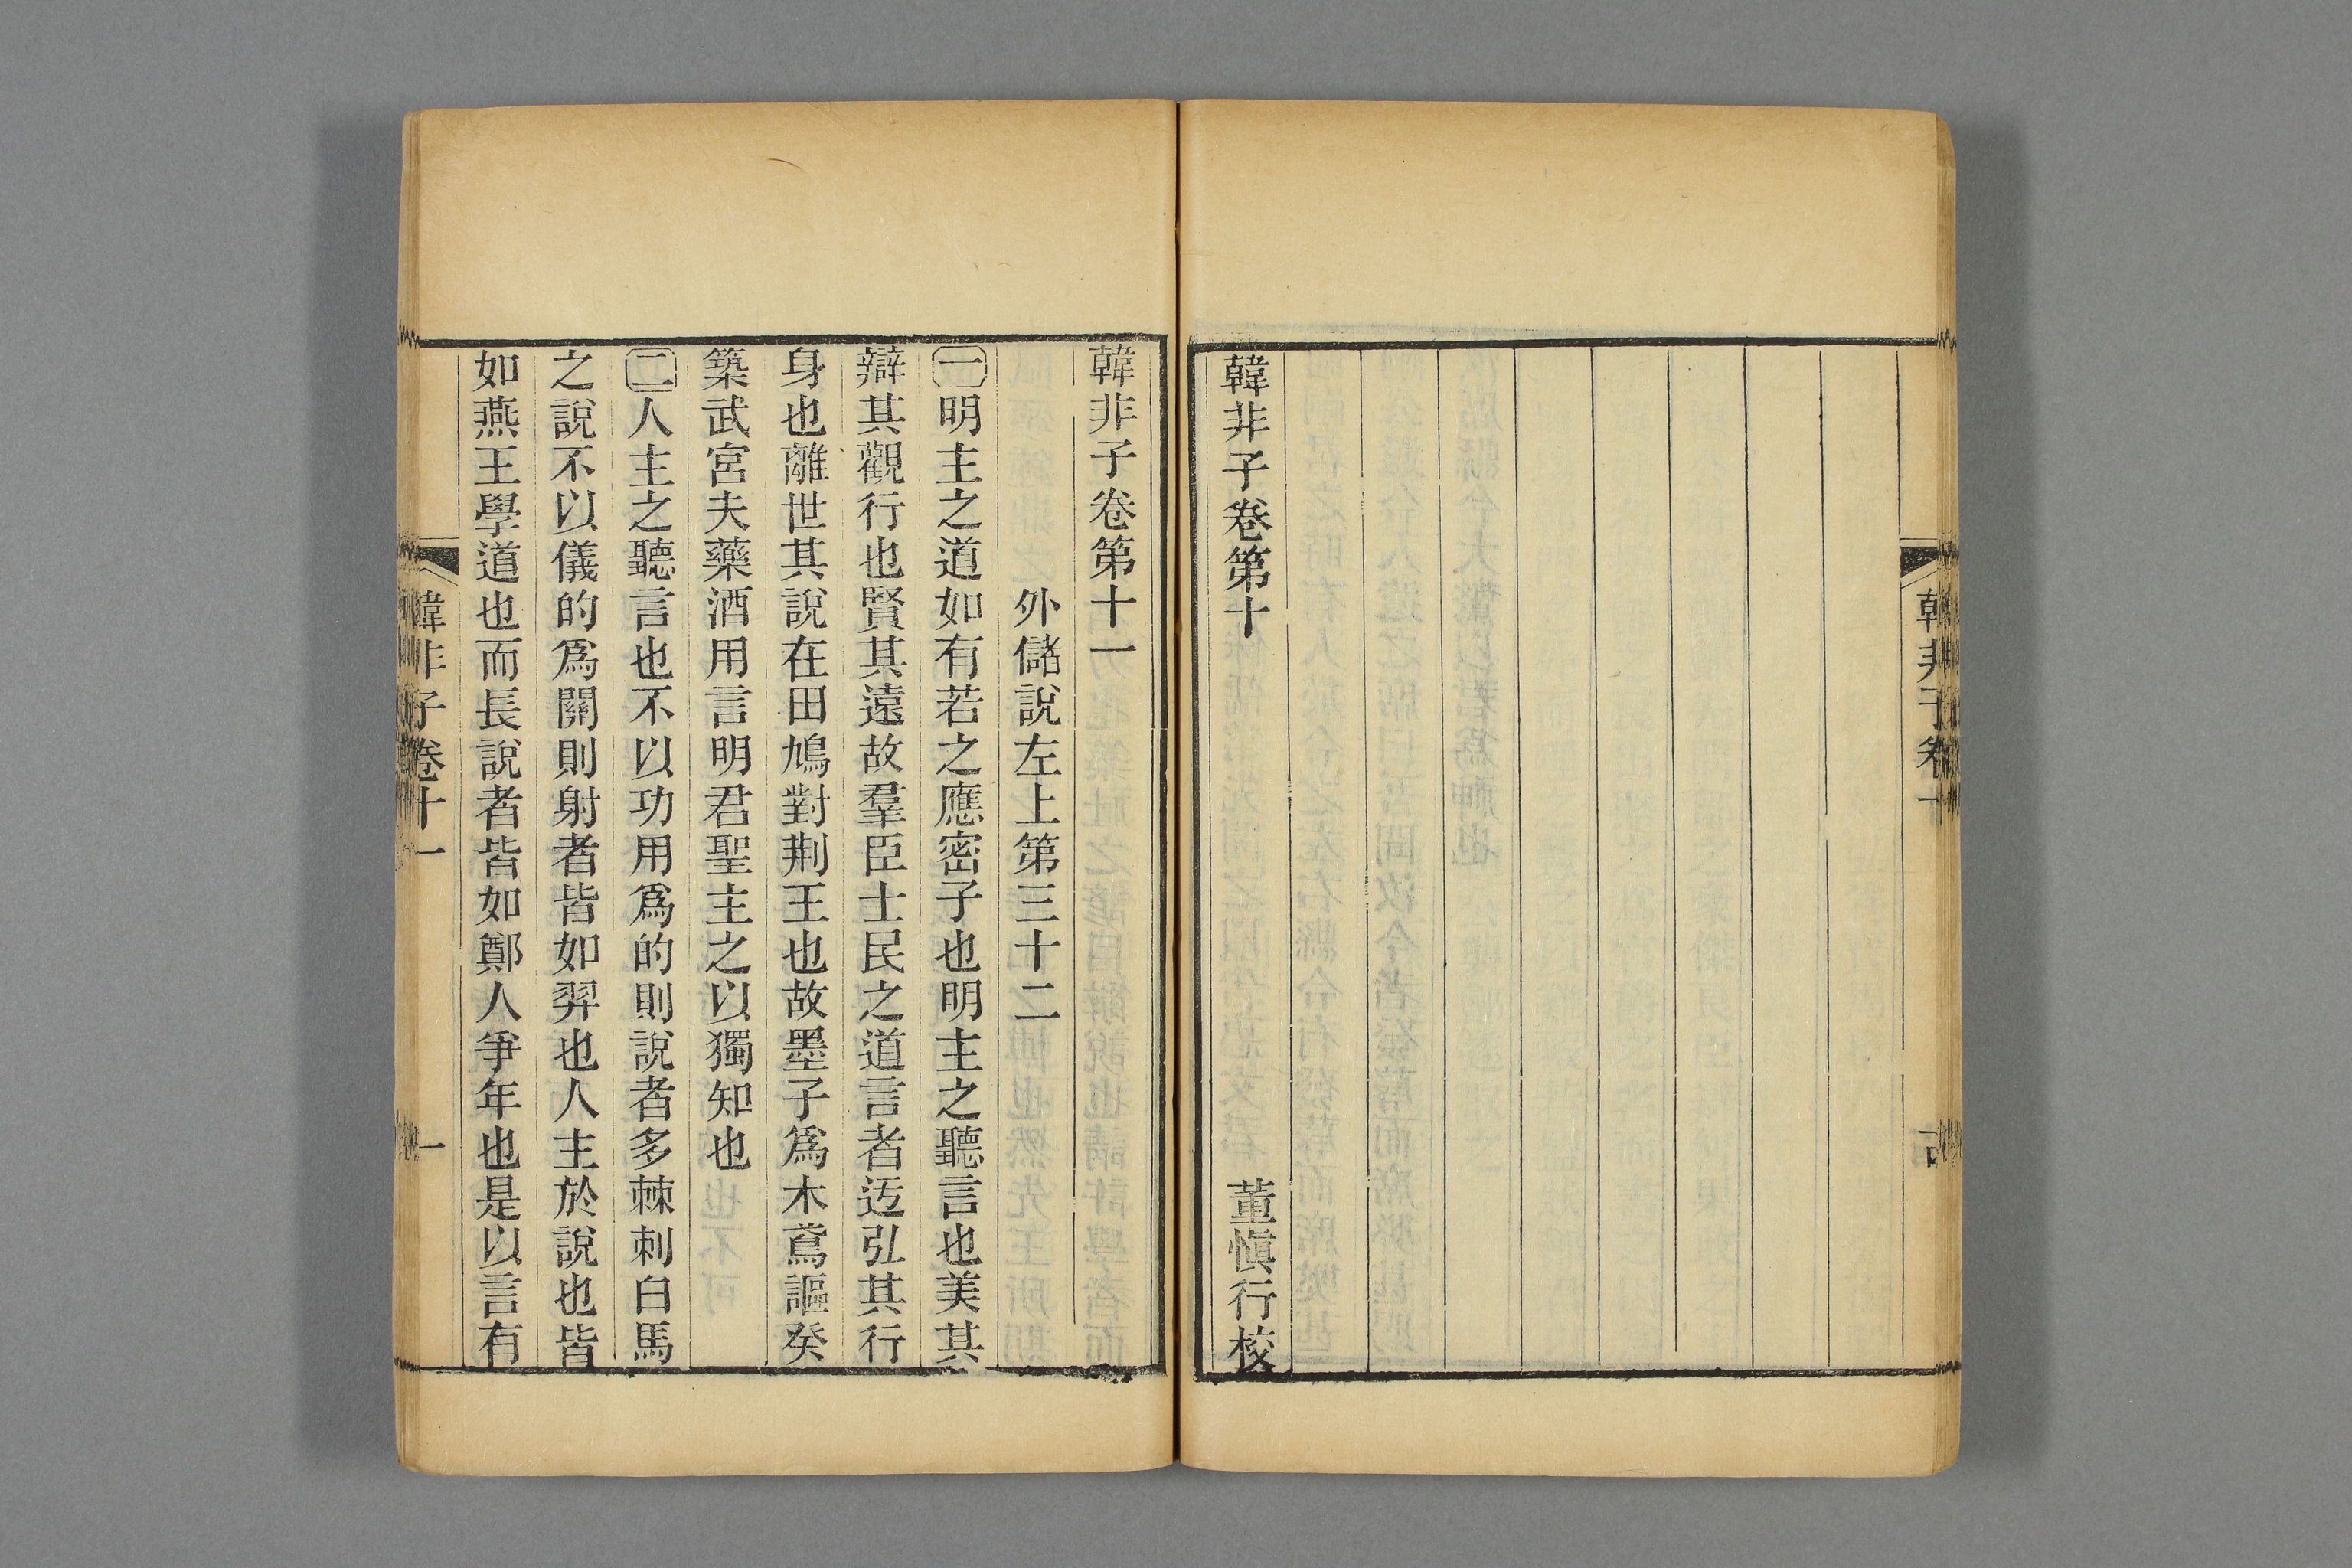 韓非子卷十
韓非子卷第十
董愼行校
韓非子卷第十一
外儲說左上第三十二
一明主之道如有若之應密子也明主之聽言也美其
辯其觀行也賢其遠故羣臣士民之道言者迃弘其行
身也離世其說在田鳩對荆王也故墨子爲木鳶謳癸
築武宮夫藥酒用言明君聖主之以獨知也
二人主之聽言也不以功用爲的則說者多棘刺白馬
之說不以儀的爲關則射者皆如羿也人主於說也皆
如燕王學道也而長說者皆如鄭人爭年也是以言有
韓非子卷十一
一